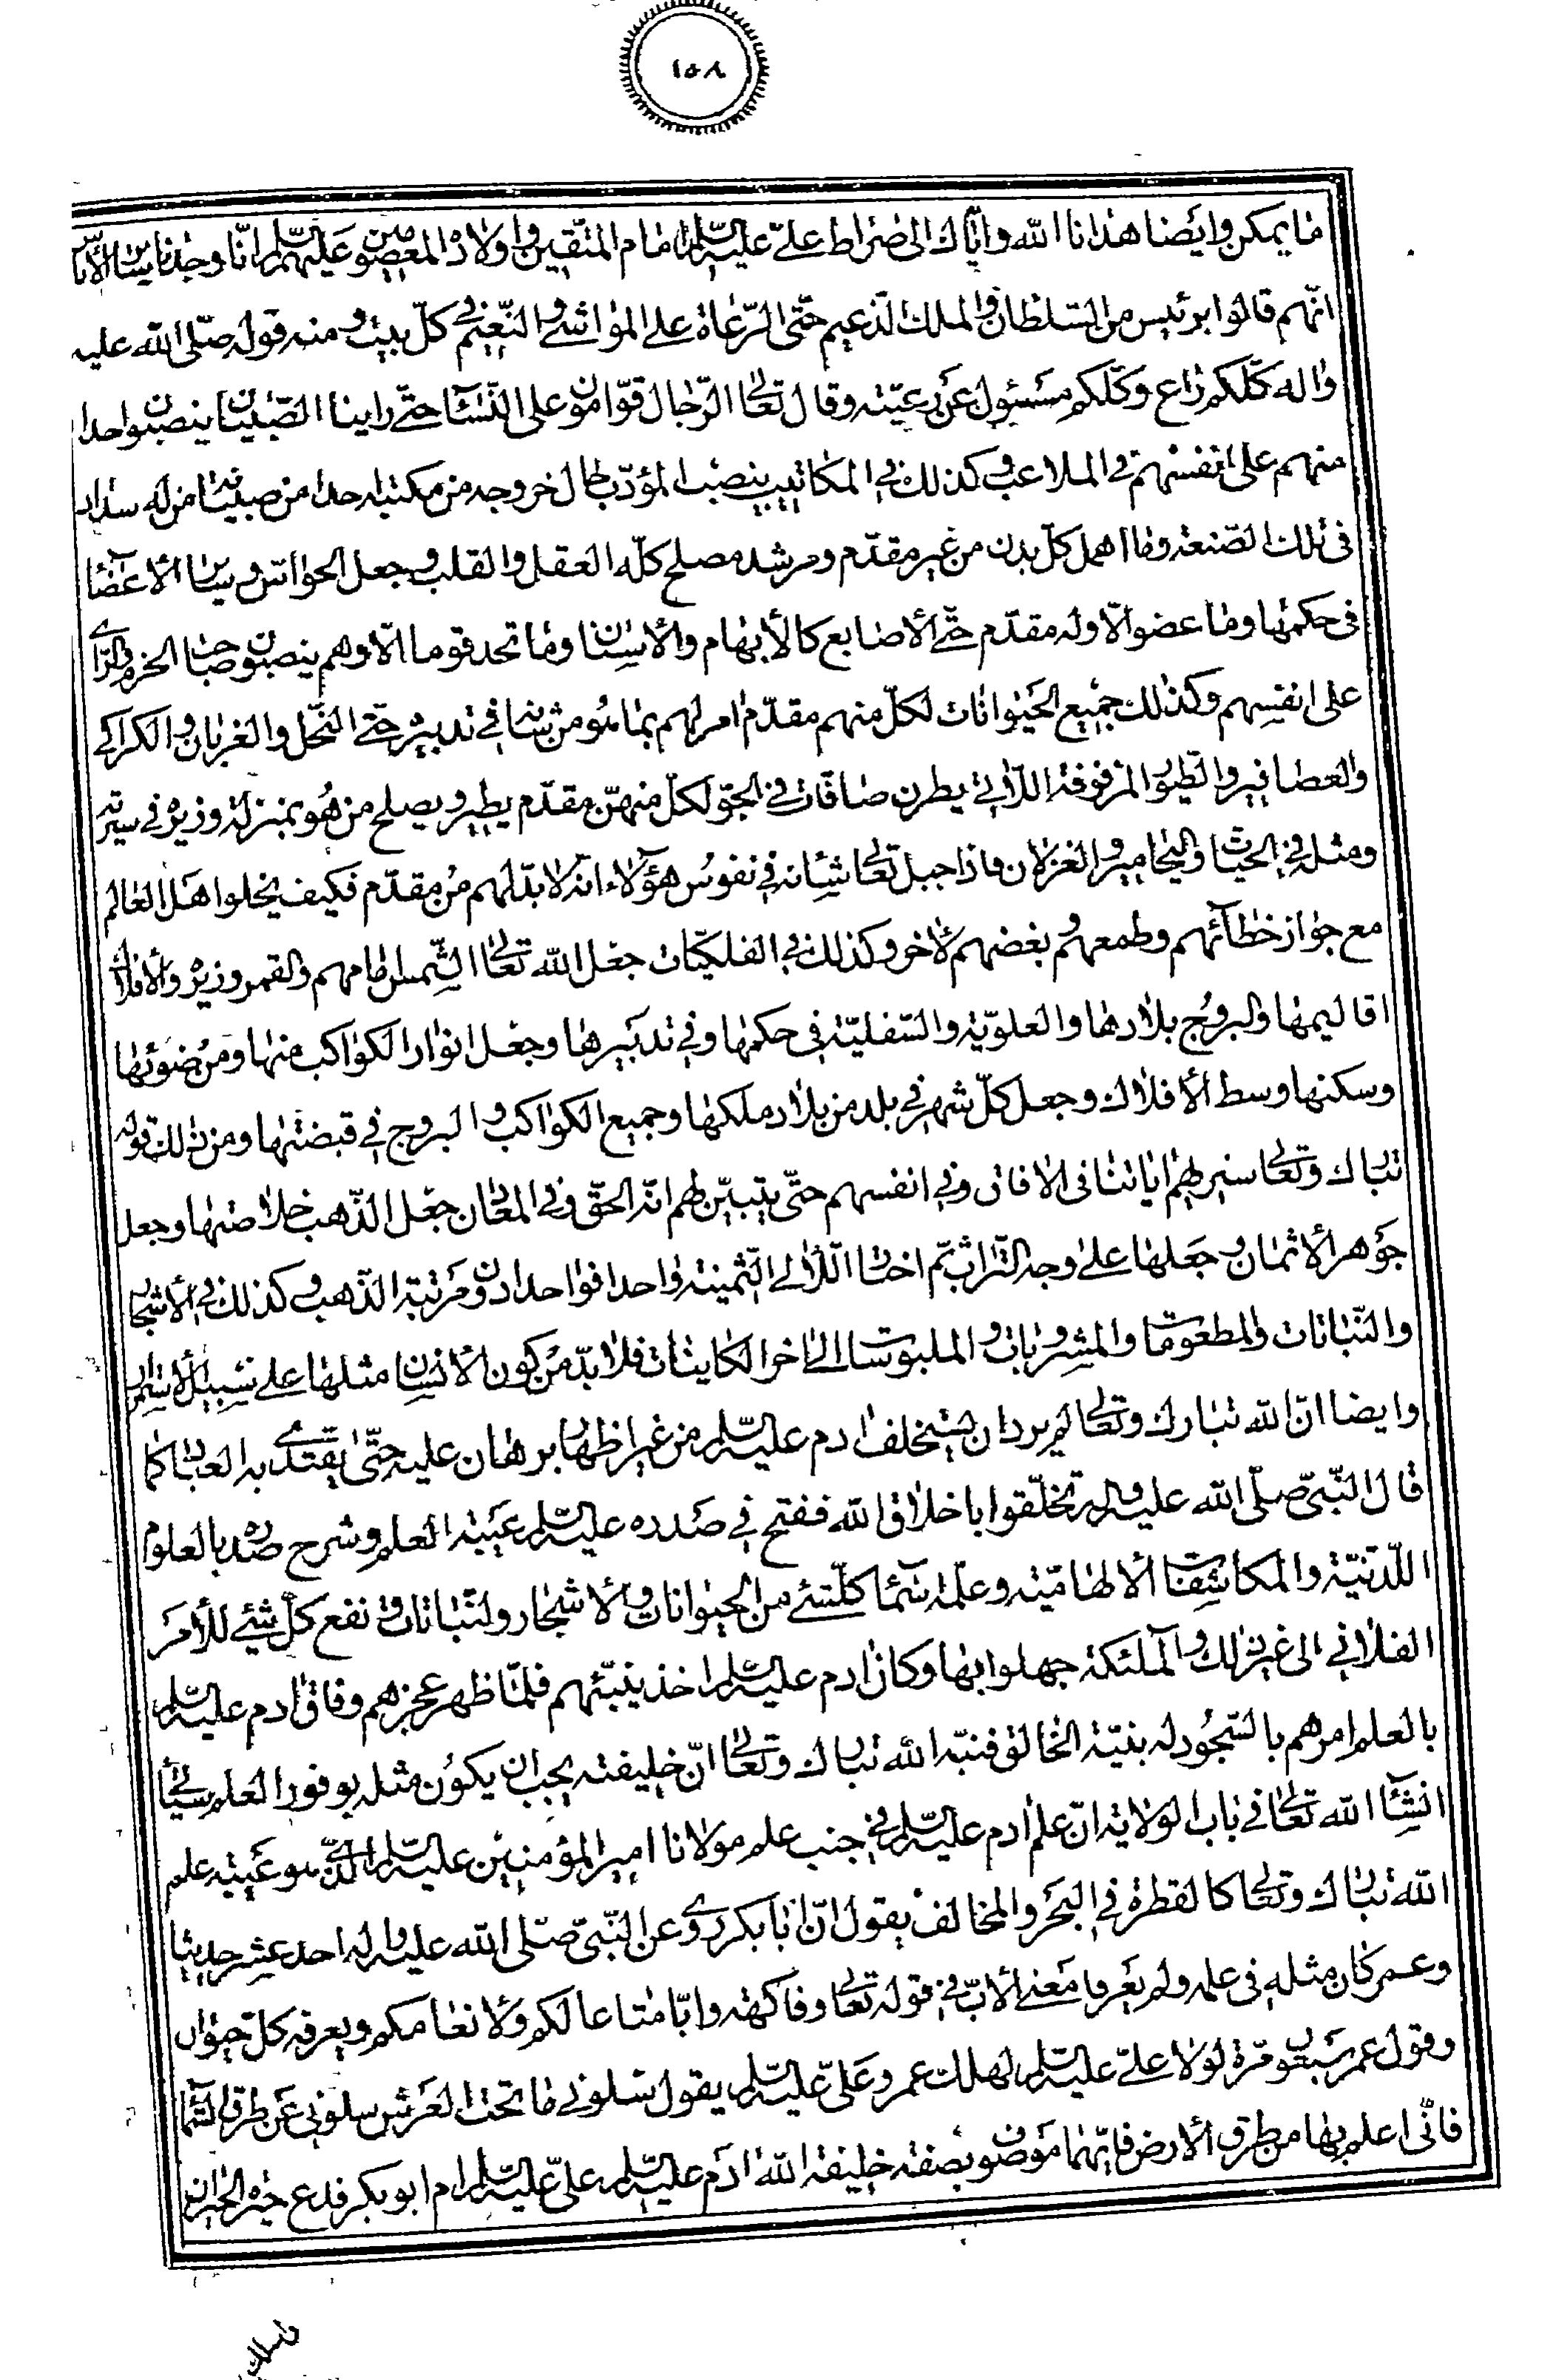 ١٥٨
ما يمكن وايضا هدانا الله واياك الى صراط علىّ عليه السلم امام المتقين واولاده المعصومين عليهم السلم انّا وجدنا سائر
انّهم قالوا برئيس من السلطان والملك الذعيم حتى الرّعاة على المواشى والنّعيم فى كل بيت ومنه قوله صلّى الله عليه
واله كلّكم راع وكلّكم مسئول عن رعيّته وقال تعالى الرّجال قوّامون على النّساء حتى راينا الصّبيان ينصبون واحدا
منهم على انفسهم فى الملاعب وكذلك فى المكاتيب ينصب المؤدّب حال خروجه من مكتبه احدا من صبيته من له سداد
فى تلك الصّنعة وما اهمل كل بدن من غير مقدّم ومرشد مصلح كلّه العقل والقلب وجعل الحواس وسائر الاعضاء
فى حكمها وما عضو الّا وله مقدّم حتى الاصابع كالابهام والاسنان وما تجد قوما الّا وهم ينصبون صاحب الحزم والراى
على انفسهم وكذلك جميع الحيوانات لكل منهم مقدّم امر لهم بما هو من شانه فى تدبيره حتى النّحل والغربان والكراكى
والعصافير والطيور المزفوفة اللّاتى يطرن صافّات فى الجوّ لكل منهنّ مقدّم يطير ويصلح من هو بمنزلة وزيره فى سيره
ومثله فى الحيتان واليحامير والغزلان فاذا جبل تعالى شانه فى نفوس هؤلاء انه لا بدّ لهم من مقدّم فكيف يخلوا هل العالم
مع جواز خطائهم وطمعهم بعضهم لاخر وكذلك فى الفلكيّات جعل الله تعالى الشّمس امامهم والقمر وزيره والافلاك
اقاليمها والبروج بلادها والعلويّة والسّفليّة فى حكمها وفى تدبيرها وجعل انوار الكواكب منها ومن ضوئها
وسكنها وسط الافلاك وجعل كلّ شهر فى بلد من بلاد ملكها وجميع الكواكب والبروج فى قبضتها ومن ذلك قوله
تبارك وتعالى سنريهم اياتنا فى الافاق وفى انفسهم حتّى يتبيّن لهم انّه الحقّ وفى المعادن جعل الذّهب خلاصتها وجعل
جوهر الاثمان وجعلها على وجه التراب ثم اختار اللّالى الثّمينة واحدا فواحدا دون مرتبة الذّهب وكذلك فى الاشجار
والنّباتات والمطعومات والمشروبات والملبوسات الى اخر الكاينات فلا بدّ من كون الانسان مثلها على سبيل الاستمرار
وايضا انّ الله تبارك وتعالى لم يرد ان يستخلف ادم عليه السلم من غير اظهار برهان عليه حتّى يقتدى به العباد كما
قال النّبىّ صلّى الله عليه واله تخلّقوا باخلاق الله ففتح فى صدره عليه السلم عيبة العلم وشرح صدره بالعلوم
اللّدنيّة والمكاشفات الالهاميّة وعلّمه اسماء كلّشئ من الحيوانات والاشجار والنباتات ونفع كلّ شئ للامر
الفلانى الى غير ذلك والملئكة جهلوا بها وكان ادم عليه السلم اخذ ينبّئهم فلمّا ظهر عجزهم وفاق ادم عليه السلم
بالعلم امرهم بالسّجود له بنيّة الخالق فنبّه الله تبارك وتعالى انّ خليفته يجب ان يكون مثله بوفور العلم سيأتى
انشاء الله تعالى فى باب الولاية انّ علم ادم عليه السلم فى جنب علم مولانا امير المؤمنين عليه السلم الذى هو عيبة علم
الله تبارك وتعالى كالقطرة فى البحر والمخالف يقول انّ ابا بكر روى عن النّبىّ صلّى الله عليه واله احد عشر حديثا
وعمر كان مثله فى علمه ولم يعرفا معنى الابّ فى قوله تعالى وفاكهة وابّا متاعا لكم ولانعامكم ويعرفه كلّ حيوان
وقول عمر سبعون مرّة لولا علىّ عليه السلم لهلك عمر وعلىّ عليه السلم يقول سلونى ما تحت العرش سلونى عن طرق السّماء
فانّى اعلم بها من طرق الارض فايّهما موصوف بصفة خليفة الله ادم عليه السلم علىّ عليه السلم ام ابو بكر فدع